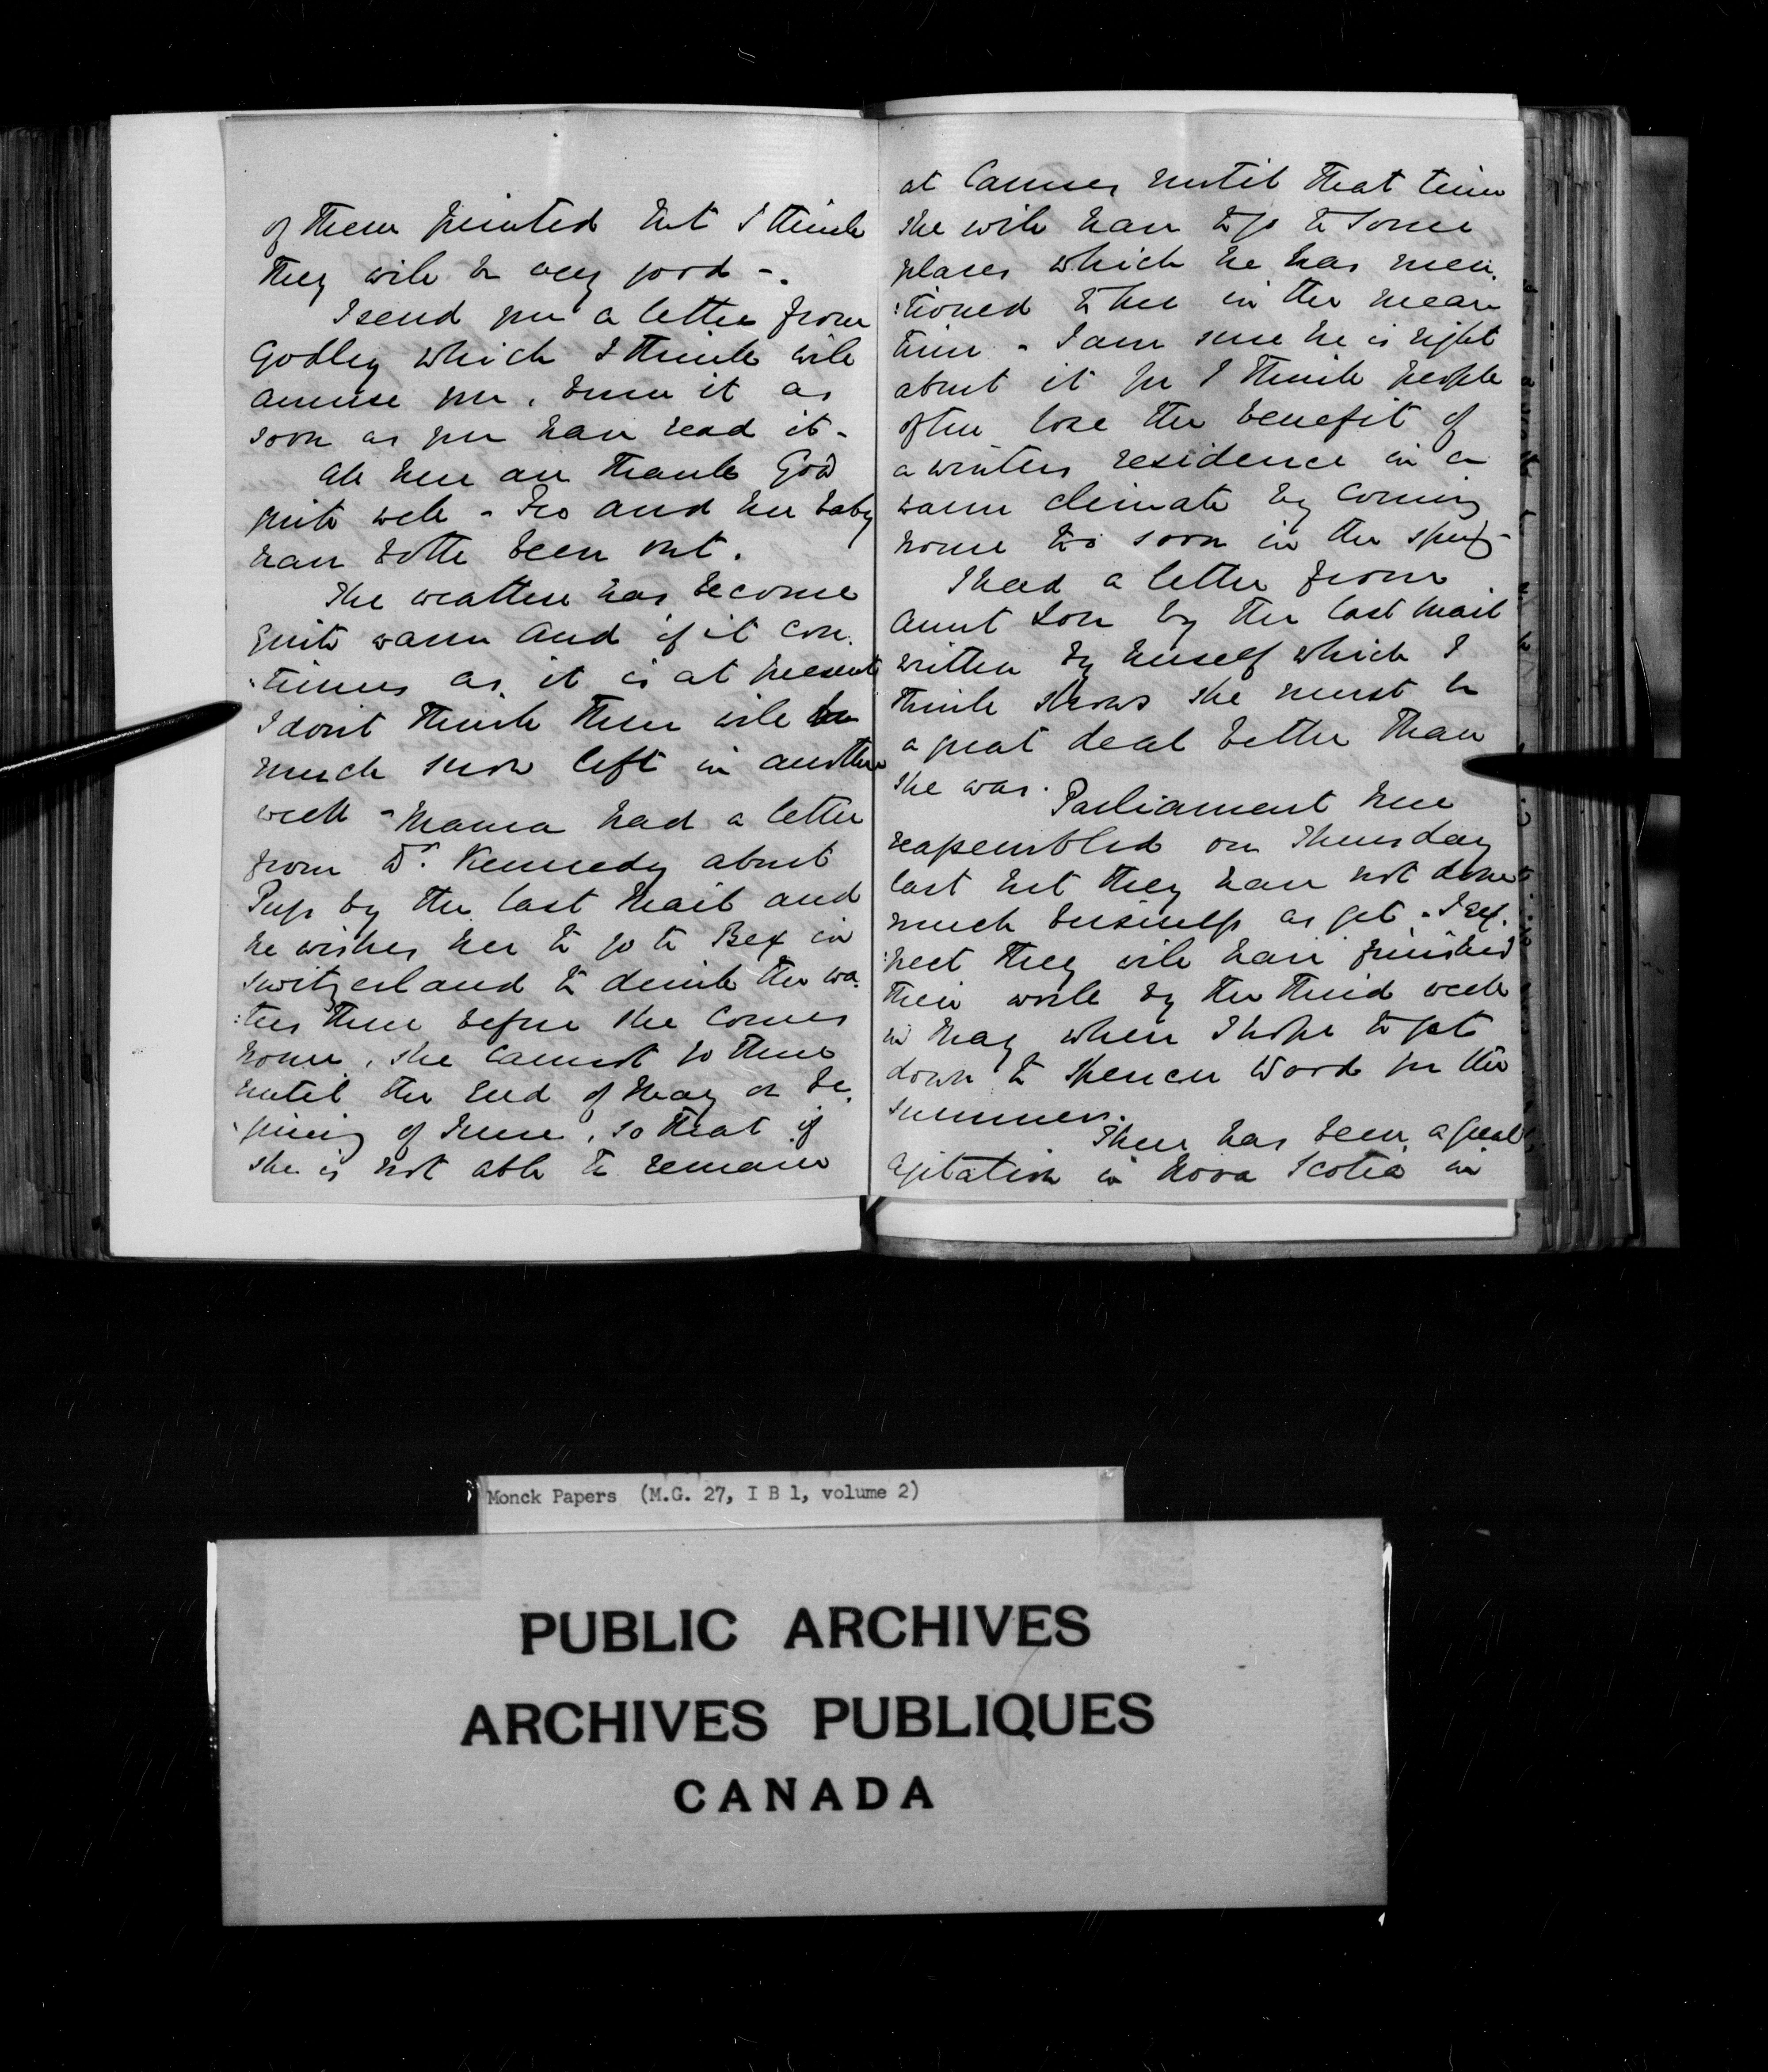 of them printed but I think
they will be very good -.
I send you a letter from
Godley which I think will
amuse you, burn it as
soon as you have read it -
All here are thank God
quite well - Feo and her baby
have both been out.
The weather has become
quite warm and if it con:
:tinues as it is at present
I don't think there will be
much snow left in another
week - Mama had a letter
from Dr. Kennedy about
Puss by the last Mail and
he wishes her to go to Bex in
Switzerland to drink the wa:
:ters there before she comes
home, she cannot go there
until the end of May or be:
:ginning of June, so that if
she is not able to remain
at Cannes until that time
she will have to go to some
places which he has men:
:tioned to her in the mean
time - I am sure he is right
about it for I think people
often lose the benefit of
a winters residence in a
warm climate by coming
home too soon in the spring -
I had a letter from
Aunt Lou by the last Mail
written by herself which I
think shows she must be
a great deal better than
she was.
Parliament here
reassembled on Thursday
last but they have not done
much business as yet - I ex:
:pect they will have finished
their work by the third week
in May when I hope to get
down to Spencer Wood for the
summer.
There has been a great
agitation in Nova Scotia in
Monck Papers (M.G. 27, I B 1, volume 2)
PUBLIC ARCHIVES
ARCHIVES PUBLIQUES
CANADA